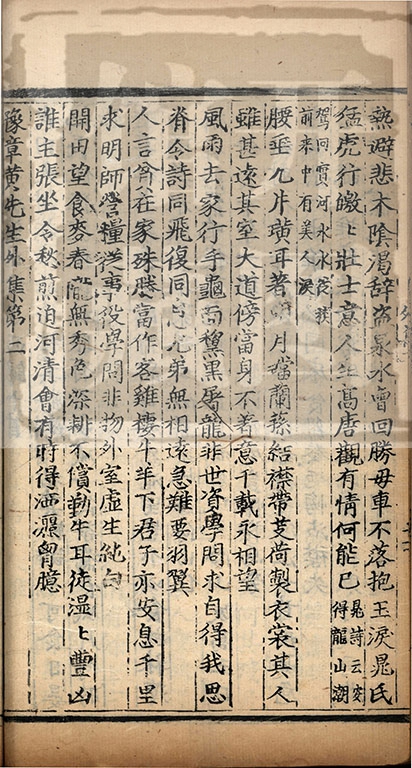 熱避悲木陰渴辭盜泉水曾回勝母車不落抱玉淚晁氏
猛虎行皦〻壯士意人生髙唐觀有情何能已
晁詩云安
得龍山潮
駕回安河水水從樓
前來中有美人淚
腰垂九井璜耳著明月璫蘭蓀結襟帶芰荷製衣裳其人
雖甚遠其室大道傍當身不著意千載永相望
風雨去家行手龜面黧黑屠龍非世資學問求自得我思
脊令詩同飛復同息兄弟無相遠急難要羽翼
人言貧在家殊勝富作客雞棲牛羊下君子亦安息千里
求明師營糧從事役學問非物外室虛生純白
開田望食麥春隴無秀色深耕不償勤牛耳徒濕〻豐凶
誰主張坐令秋煎迫河清會有時得洒濯胷臆
豫章黄先生外集第二